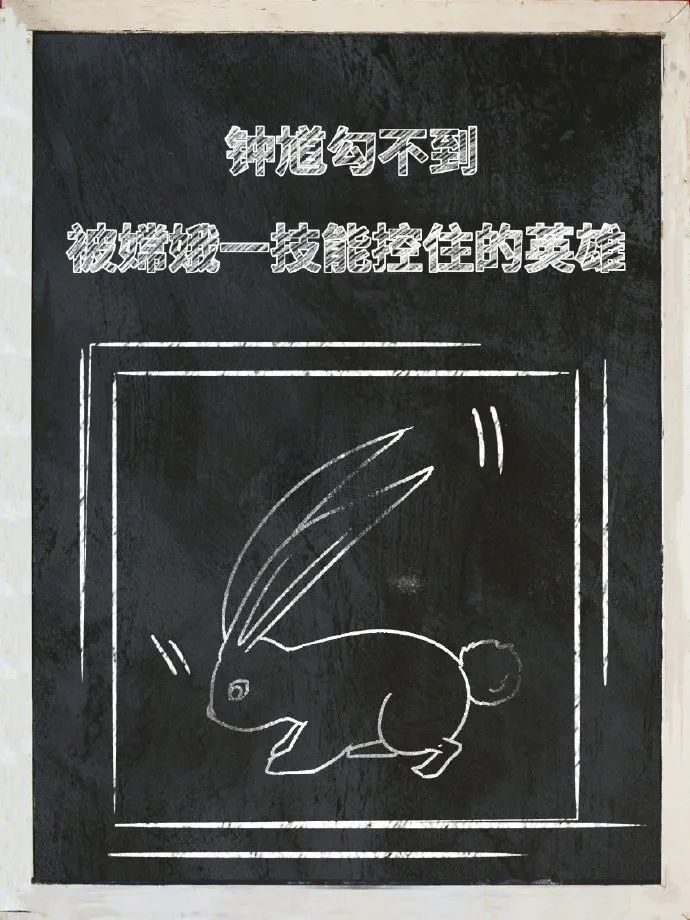 钟馗勾不到
被嫦娥一技能控住的英雄